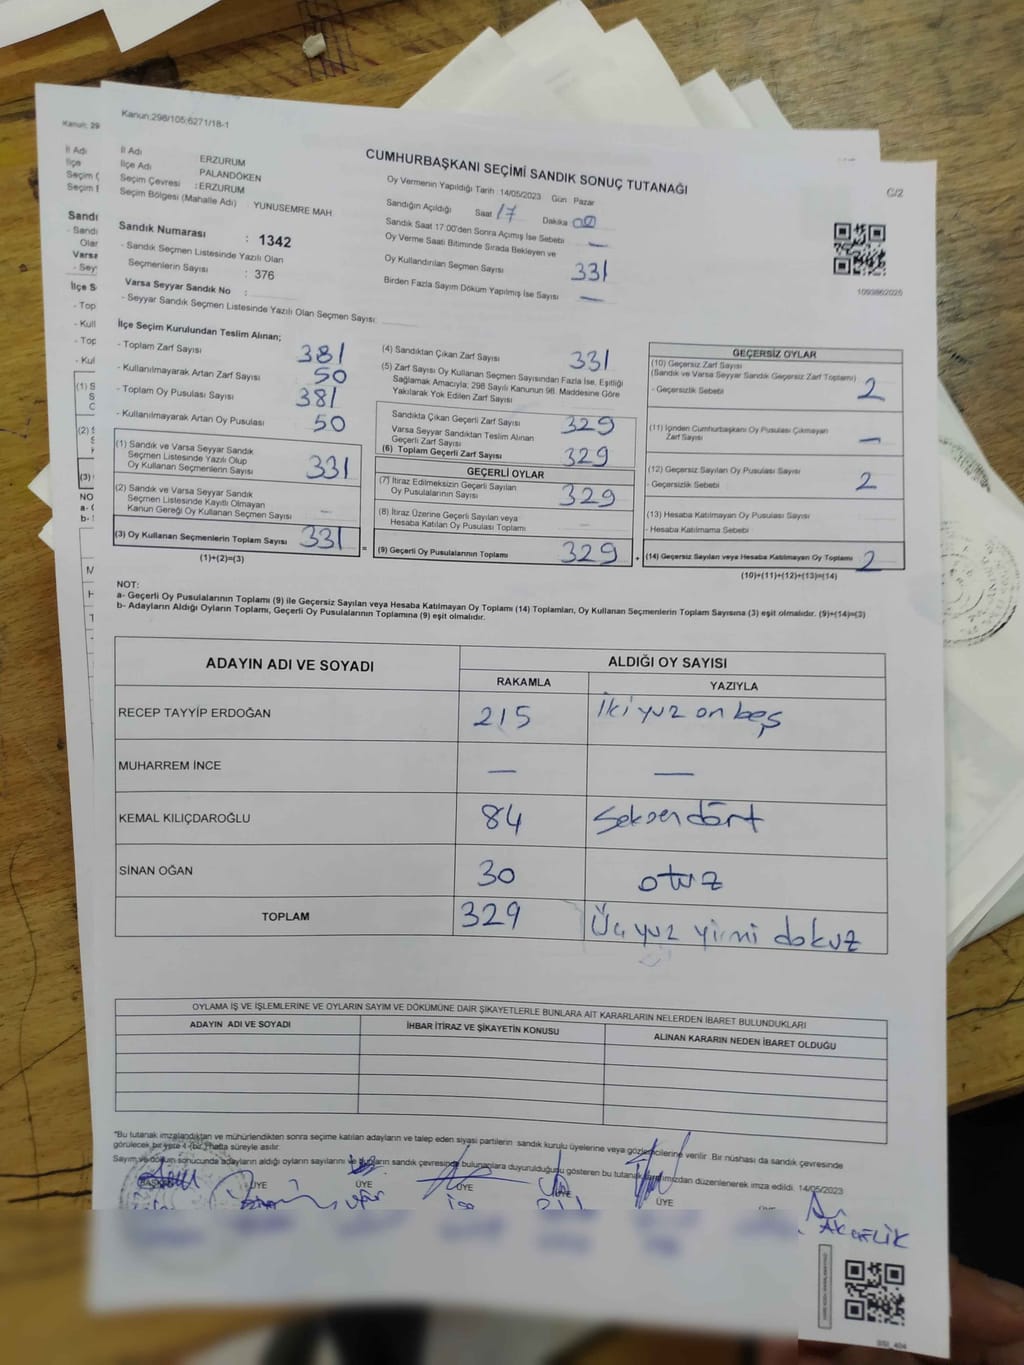 Kanun;298/105;6271/18-1
CUMHURBAŞKANI SEÇİMİ SANDIK SONUÇ TUTANAĞI
C/2
İl Adı ERZURUM
İlçe Adı PALANDÖKEN
Seçim Çevresi : ERZURUM
Seçim Bölgesi (Mahalle Adı) : YUNUSEMRE MAH.
Sandık Numarası : 1342
- Sandık Seçmen Listesinde Yazılı Olan
Seçmenlerin Sayısı : 376
Varsa Seyyar Sandık No :
- Seyyar Sandık Seçmen Listesinde Yazılı Olan Seçmen Sayısı:
Oy Vermenin Yapıldığı Tarih : 14/05/2023 Gün : Pazar
Sandığın Açıldığı Saat 17 Dakika 00
Sandık Saat 17:00'den Sonra Açımış İse Sebebi —
Oy Verme Saati Bitiminde Sırada Bekleyen ve
Oy Kullandırılan Seçmen Sayısı 331
Birden Fazla Sayım Döküm Yapılmış İse Sayısı —
1093862025
İlçe Seçim Kurulundan Teslim Alınan;
- Toplam Zarf Sayısı 381
- Kullanılmayarak Artan Zarf Sayısı 50
- Toplam Oy Pusulası Sayısı 381
- Kullanılmayarak Artan Oy Pusulası 50
(1) Sandık ve Varsa Seyyar Sandık
Seçmen Listesinde Yazılı Olup
Oy Kullanan Seçmenlerin Sayısı 331
(2) Sandık ve Varsa Seyyar Sandık
Seçmen Listesinde Kayıtlı Olmayan
Kanun Gereği Oy Kullanan Seçmen Sayısı —
(3) Oy Kullanan Seçmenlerin Toplam Sayısı 331
(1)+(2)=(3)
(4) Sandıktan Çıkan Zarf Sayısı 331
(5) Zarf Sayısı Oy Kullanan Seçmen Sayısından Fazla İse, Eşitliği
Sağlamak Amacıyla; 298 Sayılı Kanunun 98. Maddesine Göre
Yakılarak Yok Edilen Zarf Sayısı
Sandıkta Çıkan Geçerli Zarf Sayısı 329
Varsa Seyyar Sandıktan Teslim Alınan
Geçerli Zarf Sayısı
(6) Toplam Geçerli Zarf Sayısı 329
GEÇERLİ OYLAR
(7) İtiraz Edilmeksizin Geçerli Sayılan
Oy Pusulalarının Sayısı 329
(8) İtiraz Üzerine Geçerli Sayılan veya
Hesaba Katılan Oy Pusulası Toplamı —
= (9) Geçerli Oy Pusulalarının Toplamı 329
GEÇERSİZ OYLAR
(10) Geçersiz Zarf Sayısı
(Sandık ve Varsa Seyyar Sandık Geçersiz Zarf Toplamı)
- Geçersizlik Sebebi 2
(11) İçinden Cumhurbaşkanı Oy Pusulası Çıkmayan
Zarf Sayısı —
(12) Geçersiz Sayılan Oy Pusulası Sayısı
- Geçersizlik Sebebi 2
(13) Hesaba Katılmayan Oy Pusulası Sayısı
- Hesaba Katılmama Sebebi
+ (14) Geçersiz Sayılan veya Hesaba Katılmayan Oy Toplamı 2
(10)+(11)+(12)+(13)=(14)
NOT:
a- Geçerli Oy Pusulalarının Toplamı (9) ile Geçersiz Sayılan veya Hesaba Katılmayan Oy Toplamı (14) Toplamları, Oy Kullanan Seçmenlerin Toplam Sayısına (3) eşit olmalıdır. (9)+(14)=(3)
b- Adayların Aldığı Oyların Toplamı, Geçerli Oy Pusulalarının Toplamına (9) eşit olmalıdır.
ADAYIN ADI VE SOYADI ALDIĞI OY SAYISI
RAKAMLA YAZIYLA
RECEP TAYYİP ERDOĞAN 215 İki yuz on beş
MUHARREM İNCE — —
KEMAL KILIÇDAROĞLU 84 Seksen dört
SİNAN OĞAN 30 otuz
TOPLAM 329 Üç yuz yirmi dokuz
OYLAMA İŞ VE İŞLEMLERİNE VE OYLARIN SAYIM VE DÖKÜMÜNE DAİR ŞİKAYETLERLE BUNLARA AİT KARARLARIN NELERDEN İBARET BULUNDUKLARI
ADAYIN ADI VE SOYADI İHBAR İTİRAZ VE ŞİKAYETİN KONUSU ALINAN KARARIN NEDEN İBARET OLDUĞU
"Bu tutanak imzalandıktan ve mühürlendikten sonra seçime katılan adayların ve talep eden siyasi partilerin sandık kurulu üyelerine veya gözlemcilerine verilir. Bir nüshası da sandık çevresinde
görülecek bir yere 1 (bir) hafta süreyle asılır.
Sayım ve döküm sonucunda adayların aldığı oyların sayılarını ve bunların sandık çevresinde bulunanlara duyurulduğunu gösteren bu tutanak tarafımızdan düzenlenerek imza edildi. 14/05/2023
BAŞKAN ÜYE ÜYE ÜYE ÜYE ÜYE
AKÇELİK